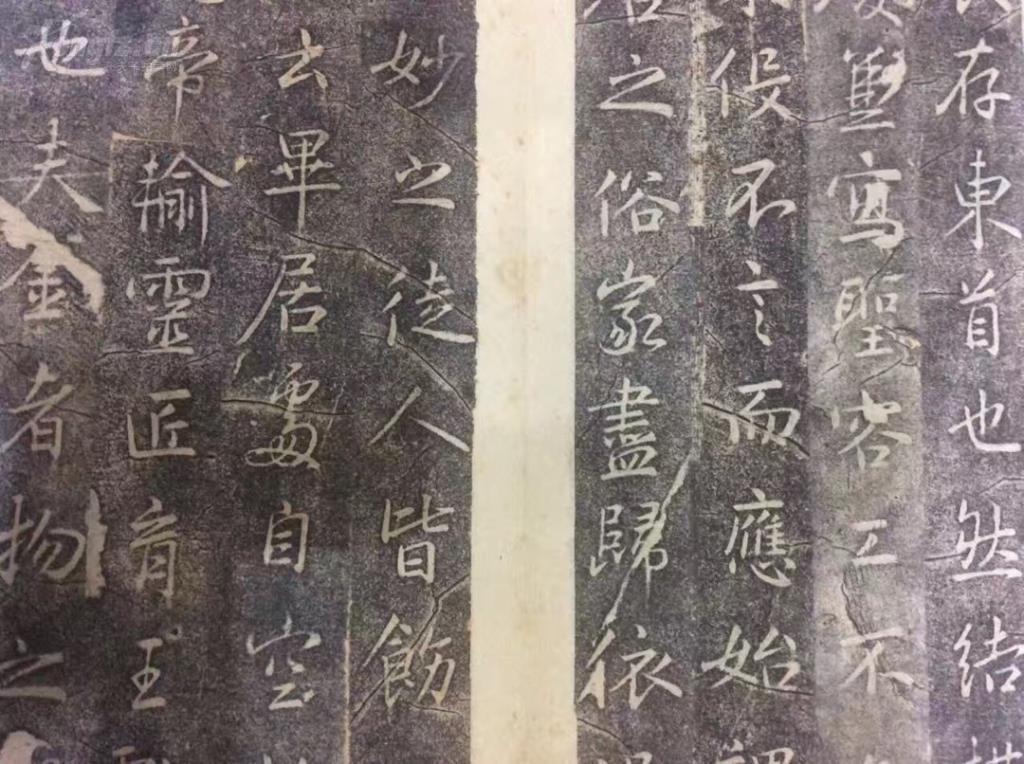 存東首也然結
寫聖容工不
役不言而應始
之俗家盡歸依
妙之徒人皆飭
云畢居處自空
帝輸靈匠育王
也夫金者物之